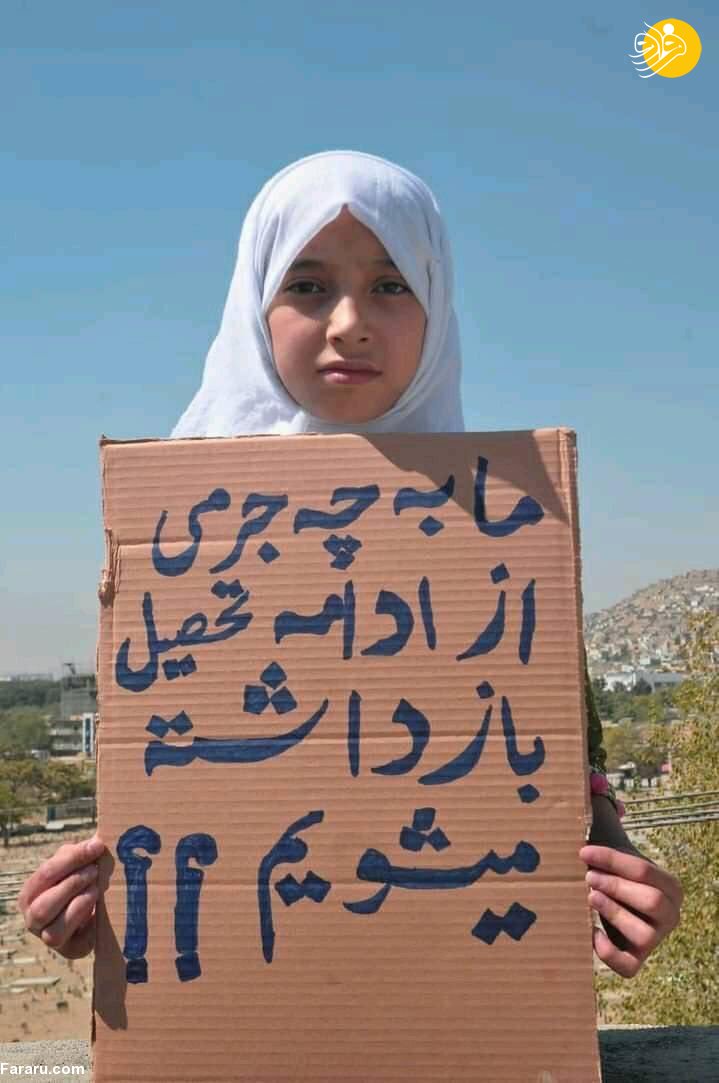 ما به چه جرمی
از ادامه تحصیل
بازداشته
میشویم ؟؟
Fararu.com